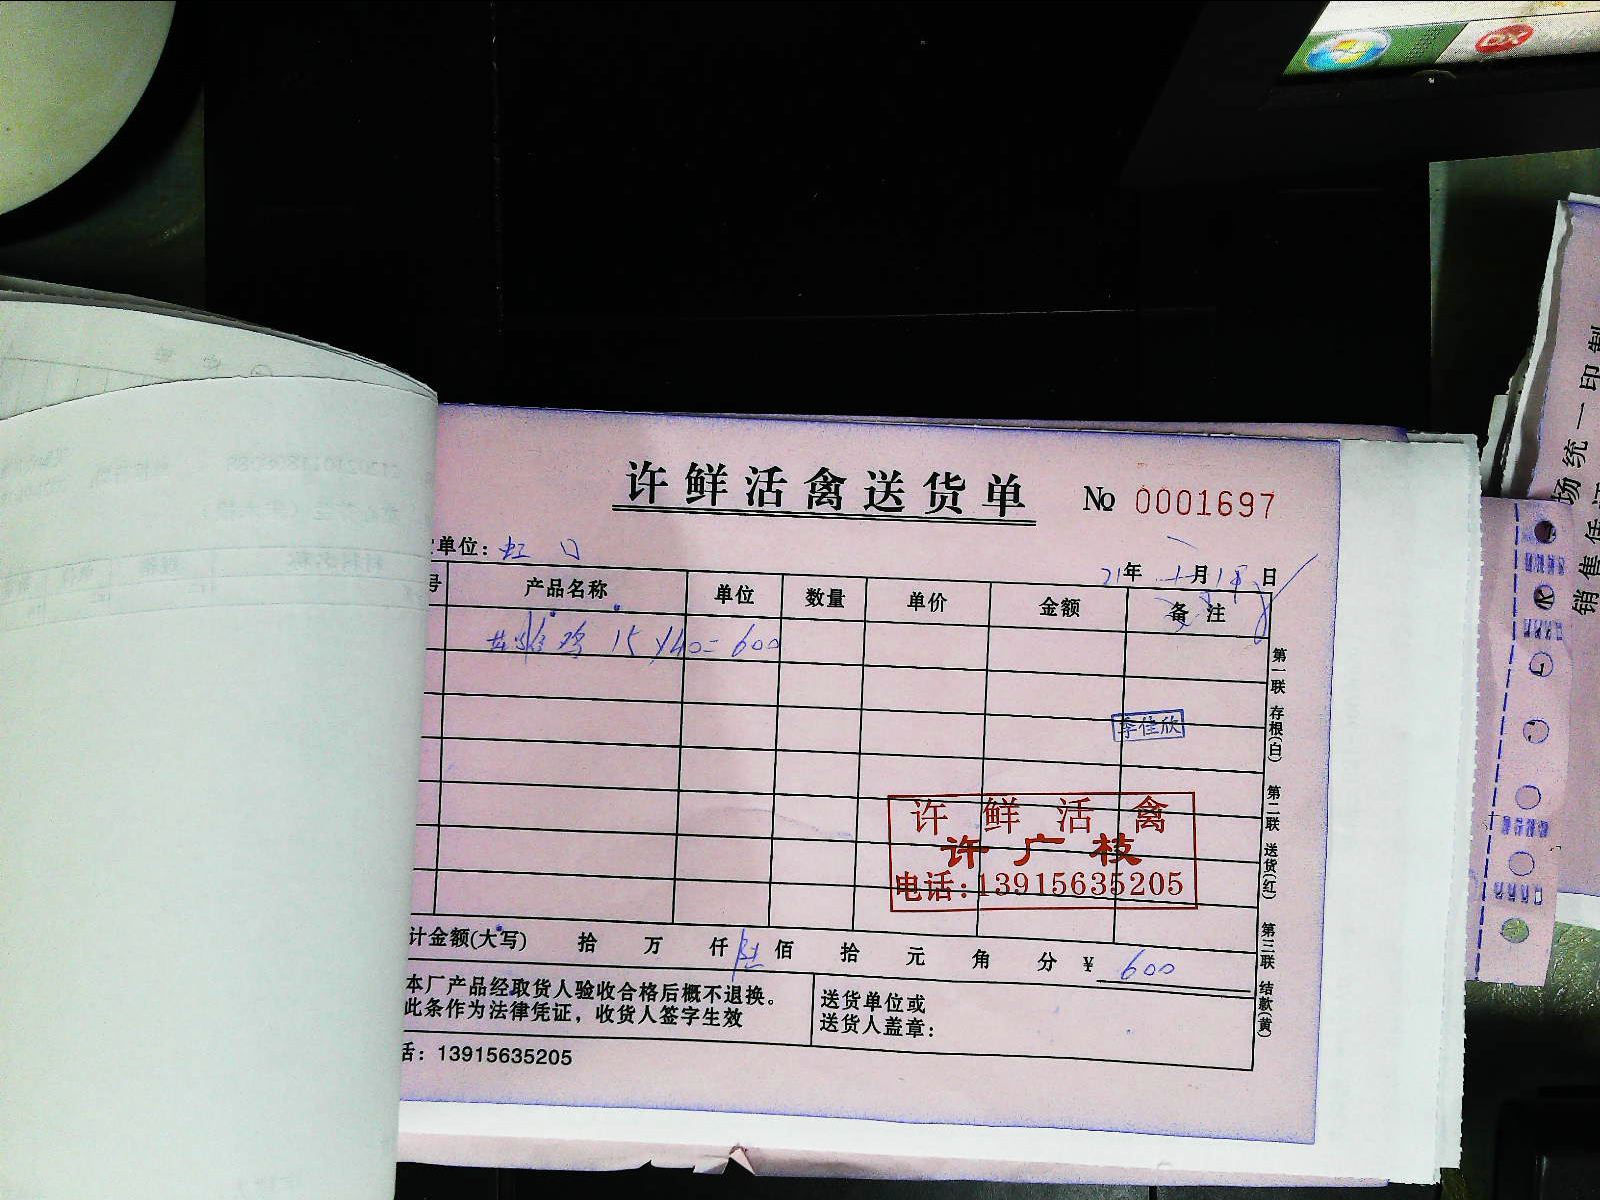 许鲜活禽送货单 № 0001697
单位: 虹口
21年 月18日
号 产品名称 单位 数量 单价 金额 备注
15×40=600
李佳欣
许鲜活禽
许广枝
电话:13915635205
计金额(大写) 拾 万 仟 陆佰 拾 元 角 分 ¥ 600
本厂产品经取货人验收合格后概不退换。
此条作为法律凭证，收货人签字生效
送货单位或
送货人盖章:
话: 13915635205
第一联 存根(白) 第二联 送货(红) 第三联 结款(黄)
场统一印制
销售凭证
DX